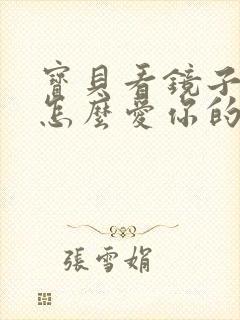 寶貝看鏡子
怎麼愛你的
張雪娟